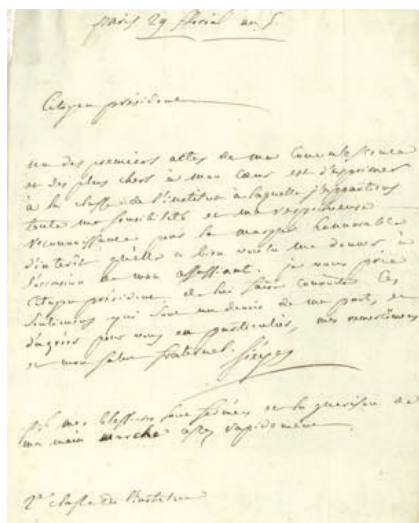 Paris 29 floréal an 5.
Citoyen président
un des premiers actes de ma convalescence
et des plus chers à mon cœur est d'exprimer
à la classe de l'institut à laquelle j'appartiens
toute ma sensibilité et ma respectueuse
reconnoissance pour la marque honorable
d'intérêt qu'elle a bien voulu me donner à
l'occasion de mon assassinat. je vous prie
Citoyen président de lui faire connoître ces
sentimens qui sont un devoir de ma part, et
d'agréer pour vous en particulier, mes remercîmens
et mon salut fraternel. Sieyes
mes blessures sont fermées et la guérison de
ma main marche assez rapidement
2e classe de l'institut